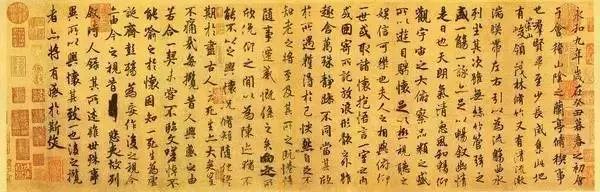 永和九年歲在癸丑暮春之初會
于會稽山陰之蘭亭脩稧事
也群賢畢至少長咸集此地
有峻領茂林脩竹又有清流激
湍暎帶左右引以為流觴曲水
列坐其次雖無絲竹管弦之
盛一觴一詠亦足以暢敘幽情
是日也天朗氣清惠風和暢仰
觀宇宙之大俯察品類之盛
所以遊目騁懷足以極視聽之
娛信可樂也夫人之相與俯仰
一世或取諸懷抱悟言一室之內
或因寄所託放浪形骸之外雖
趣舍萬殊靜躁不同當其欣
於所遇蹔得於己怏然自足不
知老之將至及其所之既惓情
隨事遷感慨係之矣向之所
欣俛仰之閒以為陳迹猶不
能不以之興懷況脩短隨化終
期於盡古人云死生亦大矣豈
不痛哉每攬昔人興感之由
若合一契未嘗不臨文嗟悼不
能喻之於懷固知一死生為虛
誕齊彭殤為妄作後之視今
亦由今之視昔悲夫故列
敘時人錄其所述雖世殊事
異所以興懷其致一也後之攬
者亦將有感於斯文